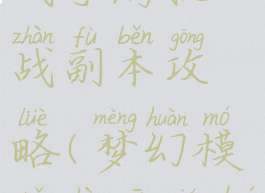 zhàn fù běn gōng
战副本攻
lüè mèng huàn mó
略(梦幻模